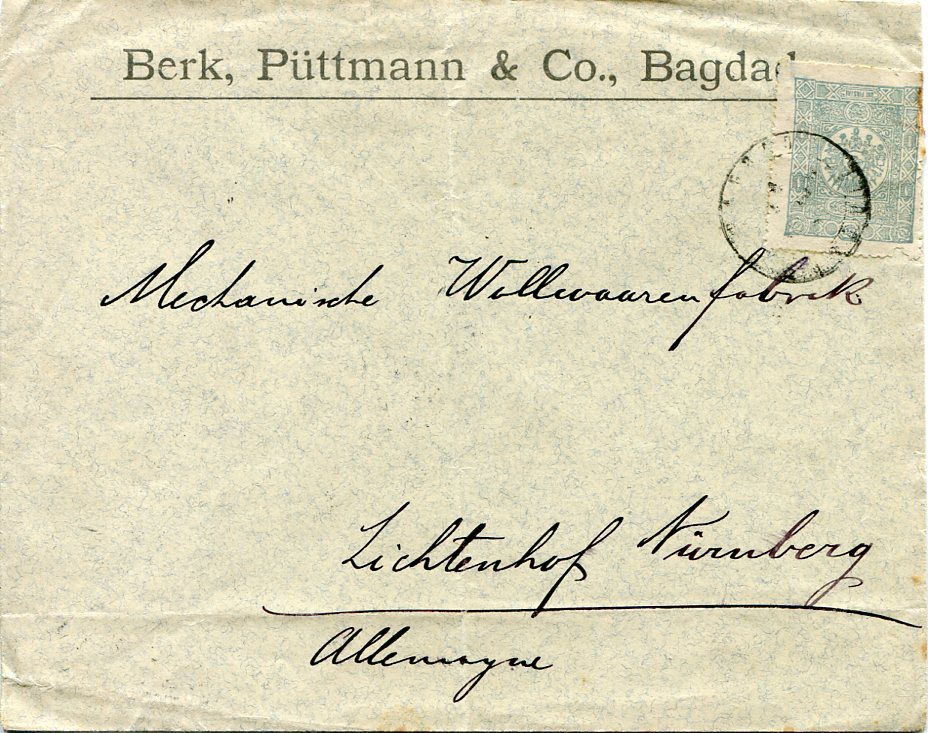 Berk, Püttmann & Co., Bagdad
Mechanische Wollwaarenfabrik
Lichtenhof Nürnberg
Allemagne